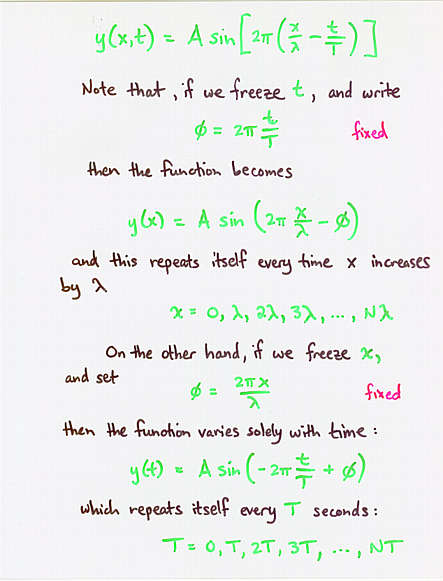 y(x,t) = A sin[2π(x/λ - t/T)]
Note that, if we freeze t, and write
ø = 2π t/T fixed
then the function becomes
y(x) = A sin (2π x/λ - ø)
and this repeats itself every time x increases
by λ
x = 0, λ, 2λ, 3λ, ..., Nλ
On the other hand, if we freeze x,
and set
ø = 2πx/λ fixed
then the function varies solely with time:
y(t) = A sin (-2π t/T + ø)
which repeats itself every T seconds:
T = 0, T, 2T, 3T, ..., NT